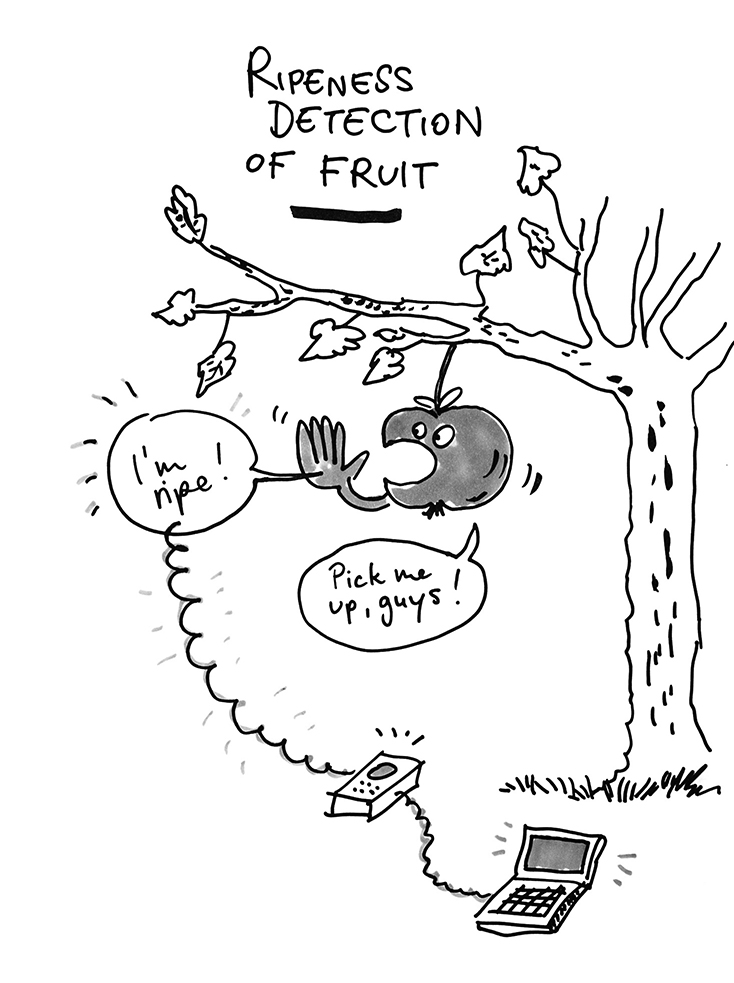 RIPENESS
DETECTION
OF FRUIT
I'm
ripe!
Pick me
up, guys!